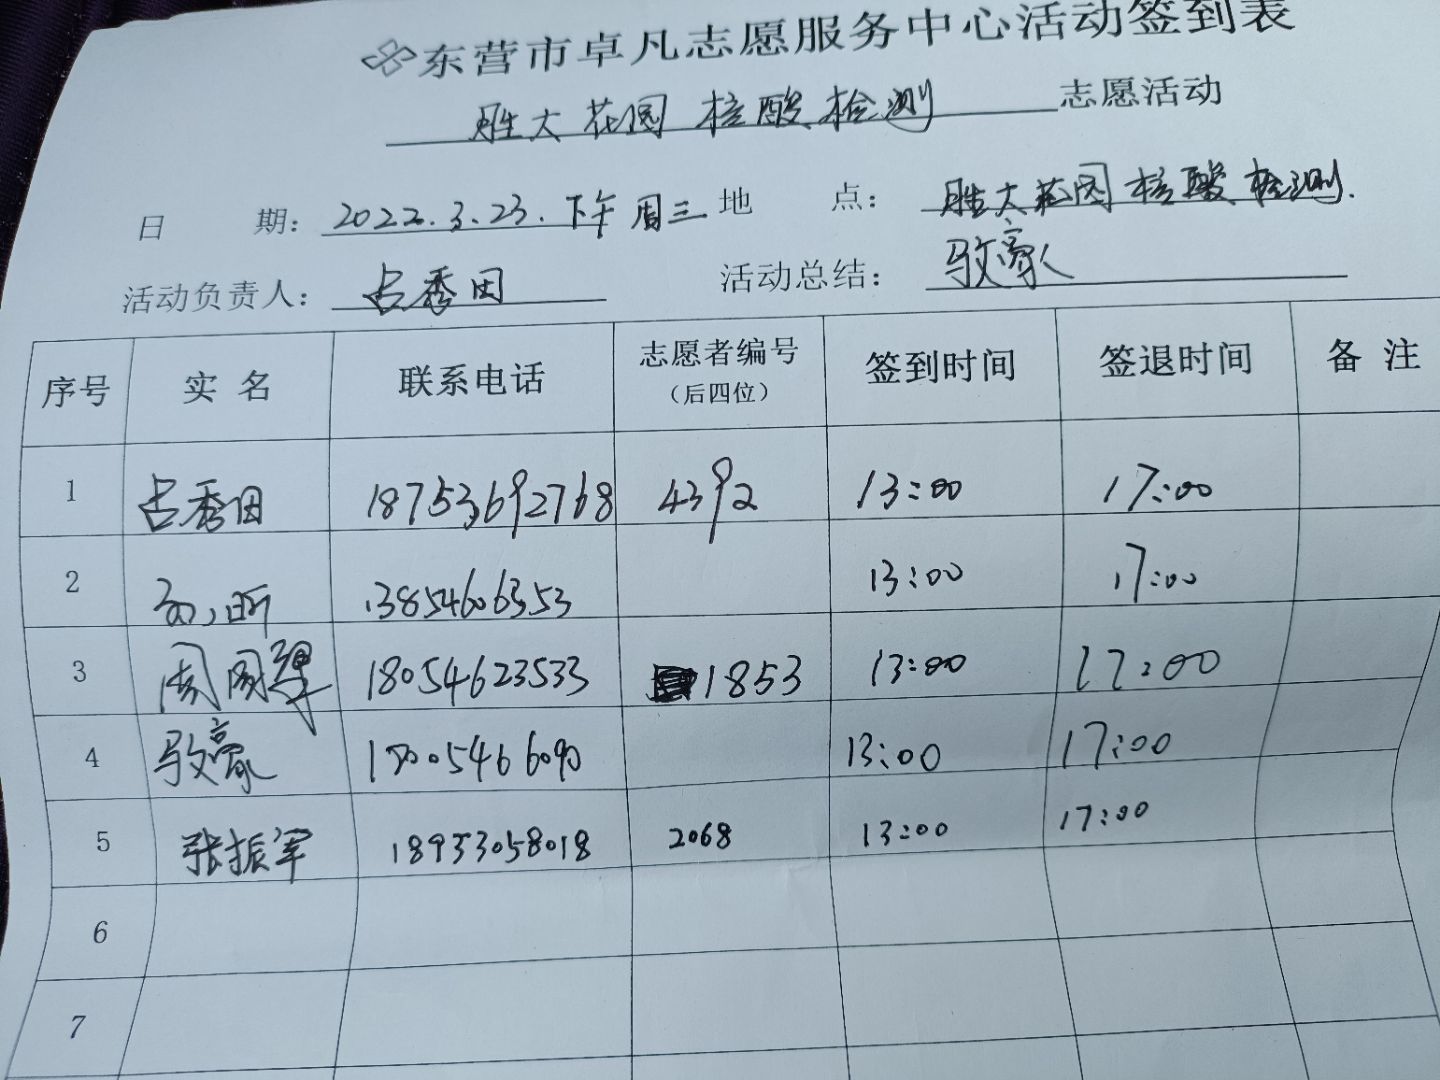 东营市卓凡志愿服务中心活动签到表
胜大花园核酸检测 志愿活动
日 期: 2022.3.23.下午 周三 地 点: 胜大花园核酸检测.
活动负责人: 占秀田 活动总结: 豪
序号 实 名 联系电话 志愿者编号 (后四位) 签到时间 签退时间 备 注
1 占秀田 18753692768 4392 13:00 17:00
2 13854606353 13:00 17:00
3 周国 18054623533 1853 13:00 17:00
4 豪 13:00 17:00
5 张振军 18953058018 2068 13:00 17:00
6
7